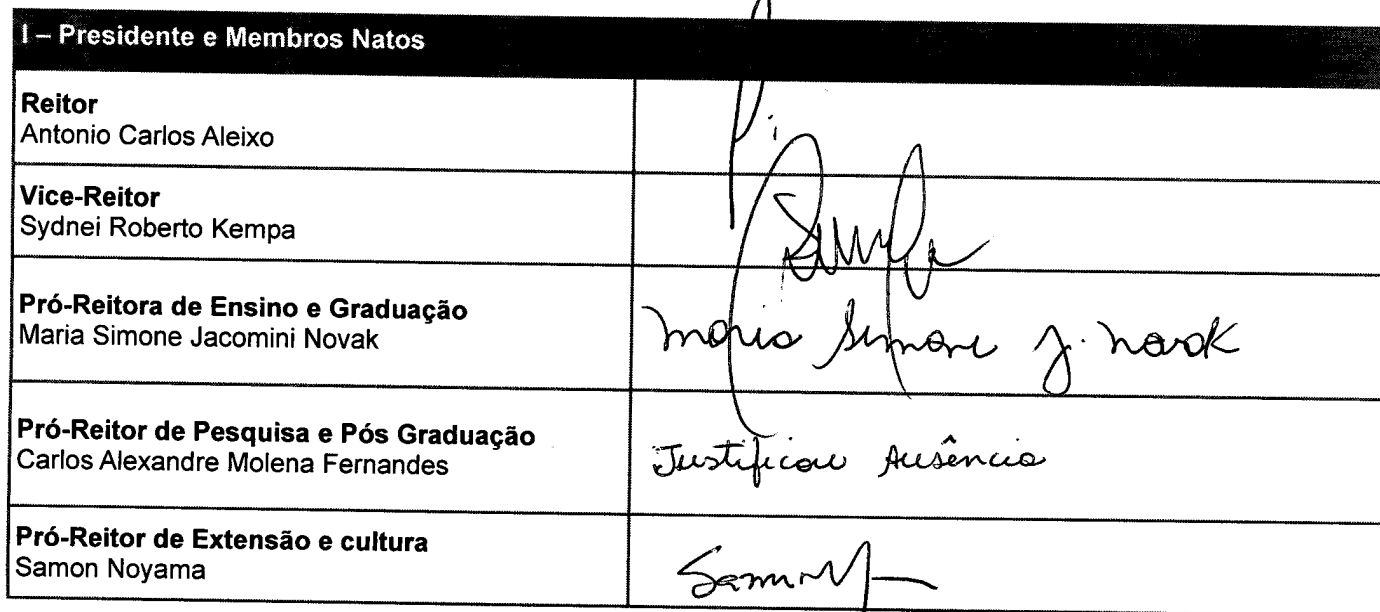 I – Presidente e Membros Natos
Reitor
Antonio Carlos Aleixo
Vice-Reitor
Sydnei Roberto Kempa
Pró-Reitora de Ensino e Graduação
Maria Simone Jacomini Novak
Maria Simone J. Novak
Pró-Reitor de Pesquisa e Pós Graduação
Carlos Alexandre Molena Fernandes
Justificou Ausência
Pró-Reitor de Extensão e cultura
Samon Noyama